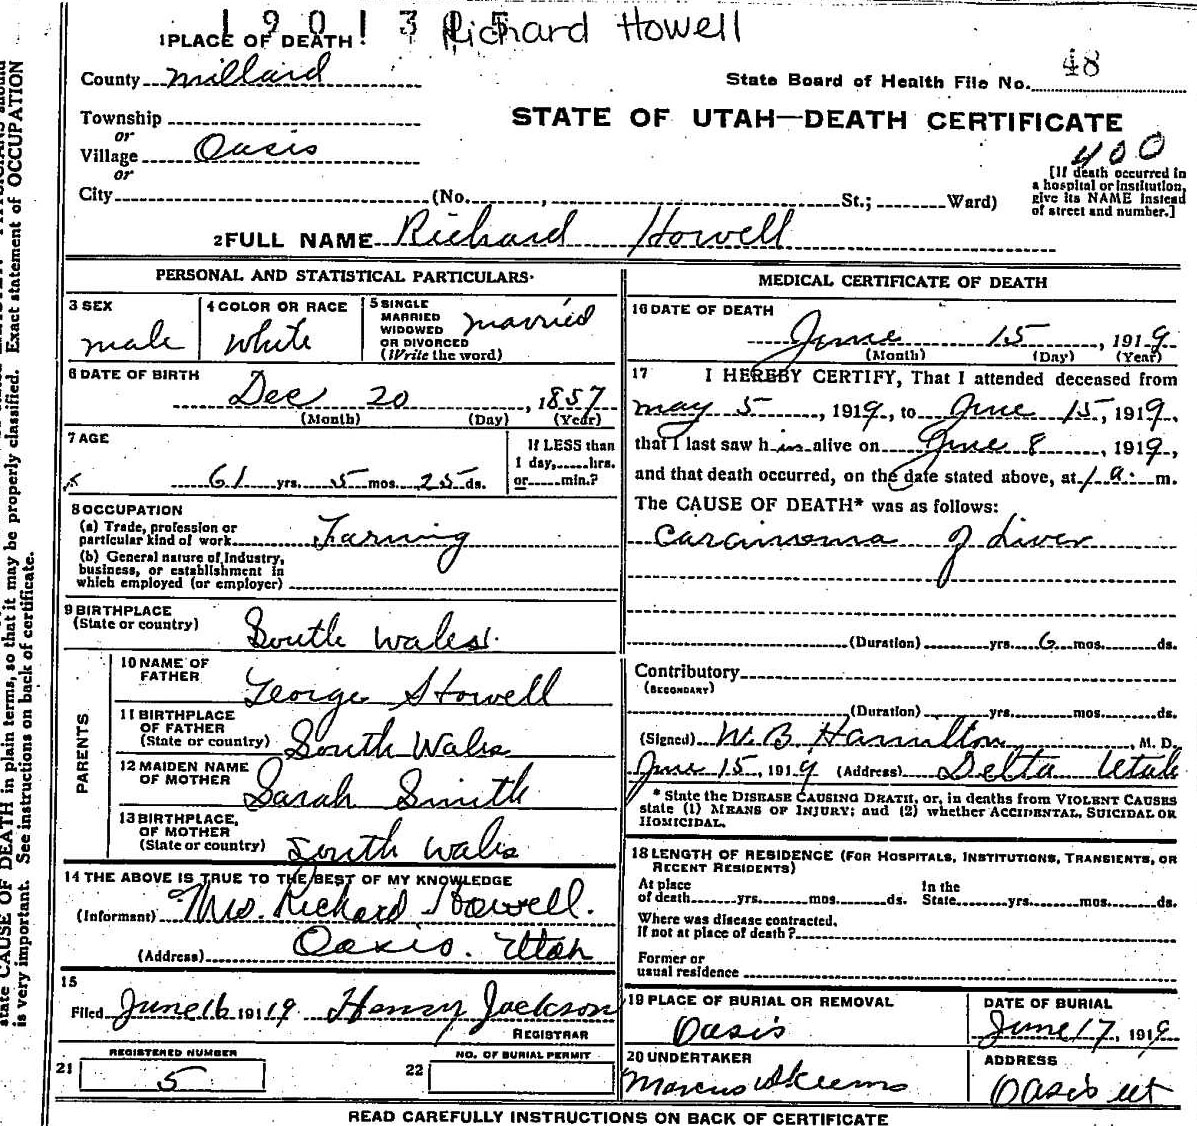 1 9 0 1 3 Richard Howell
1 PLACE OF DEATH
County Millard
State Board of Health File No. 48
STATE OF UTAH—DEATH CERTIFICATE
Township
or
Village Oasis
or
400
[If death occurred in a hospital or institution, give its NAME instead of street and number.]
City (No. , St.; Ward)
2 FULL NAME Richard Howell
PERSONAL AND STATISTICAL PARTICULARS
3 SEX
male
4 COLOR OR RACE
White
5 SINGLE
MARRIED
WIDOWED
OR DIVORCED
(Write the word)
married
6 DATE OF BIRTH
Dec 20, 1857
(Month) (Day) (Year)
7 AGE
61 yrs. 5 mos. 25 ds.
If LESS than
1 day, hrs.
or min.?
8 OCCUPATION
(a) Trade, profession or
particular kind of work Farming
(b) General nature of Industry,
business, or establishment in
which employed (or employer)
9 BIRTHPLACE
(State or country) South Wales
PARENTS
10 NAME OF
FATHER George Howell
11 BIRTHPLACE
OF FATHER
(State or country) South Wales
12 MAIDEN NAME
OF MOTHER Sarah Smith
13 BIRTHPLACE,
OF MOTHER
(State or country) South Wales
14 THE ABOVE IS TRUE TO THE BEST OF MY KNOWLEDGE
(Informant) Mrs. Richard Howell.
(Address) Oasis. Utah
15
Filed June 16 191 19 Henry Jackson
REGISTRAR
21 REGISTERED NUMBER
5
22 NO. OF BURIAL PERMIT
MEDICAL CERTIFICATE OF DEATH
16 DATE OF DEATH
June 15, 1919
(Month) (Day) (Year)
17 I HEREBY CERTIFY, That I attended deceased from
May 5, 1919, to June 15, 1919,
that I last saw him alive on June 8, 1919,
and that death occurred, on the date stated above, at 1 a. m.
The CAUSE OF DEATH* was as follows:
Carcinoma of Liver
(Duration) yrs. 6 mos. ds.
Contributory
(SECONDARY)
(Duration) yrs. mos. ds.
(Signed) W. B Hamilton, M. D.
June 15, 1919 (Address) Delta Utah
* State the DISEASE CAUSING DEATH, or, in deaths from VIOLENT CAUSES
state (1) MEANS OF INJURY; and (2) whether ACCIDENTAL, SUICIDAL OR
HOMICIDAL.
18 LENGTH OF RESIDENCE (FOR HOSPITALS, INSTITUTIONS, TRANSIENTS, OR
RECENT RESIDENTS)
At place
of death yrs. mos. ds.
In the
State yrs. mos. ds.
Where was disease contracted,
If not at place of death?
Former or
usual residence
19 PLACE OF BURIAL OR REMOVAL
Oasis
DATE OF BURIAL
June 17, 1919
20 UNDERTAKER
Marcus Skeems
ADDRESS
Oasis Ut
READ CAREFULLY INSTRUCTIONS ON BACK OF CERTIFICATE
state CAUSE OF DEATH in plain terms, so that it may be properly classified. Exact statement of OCCUPATION
is very important. See instructions on back of certificate.